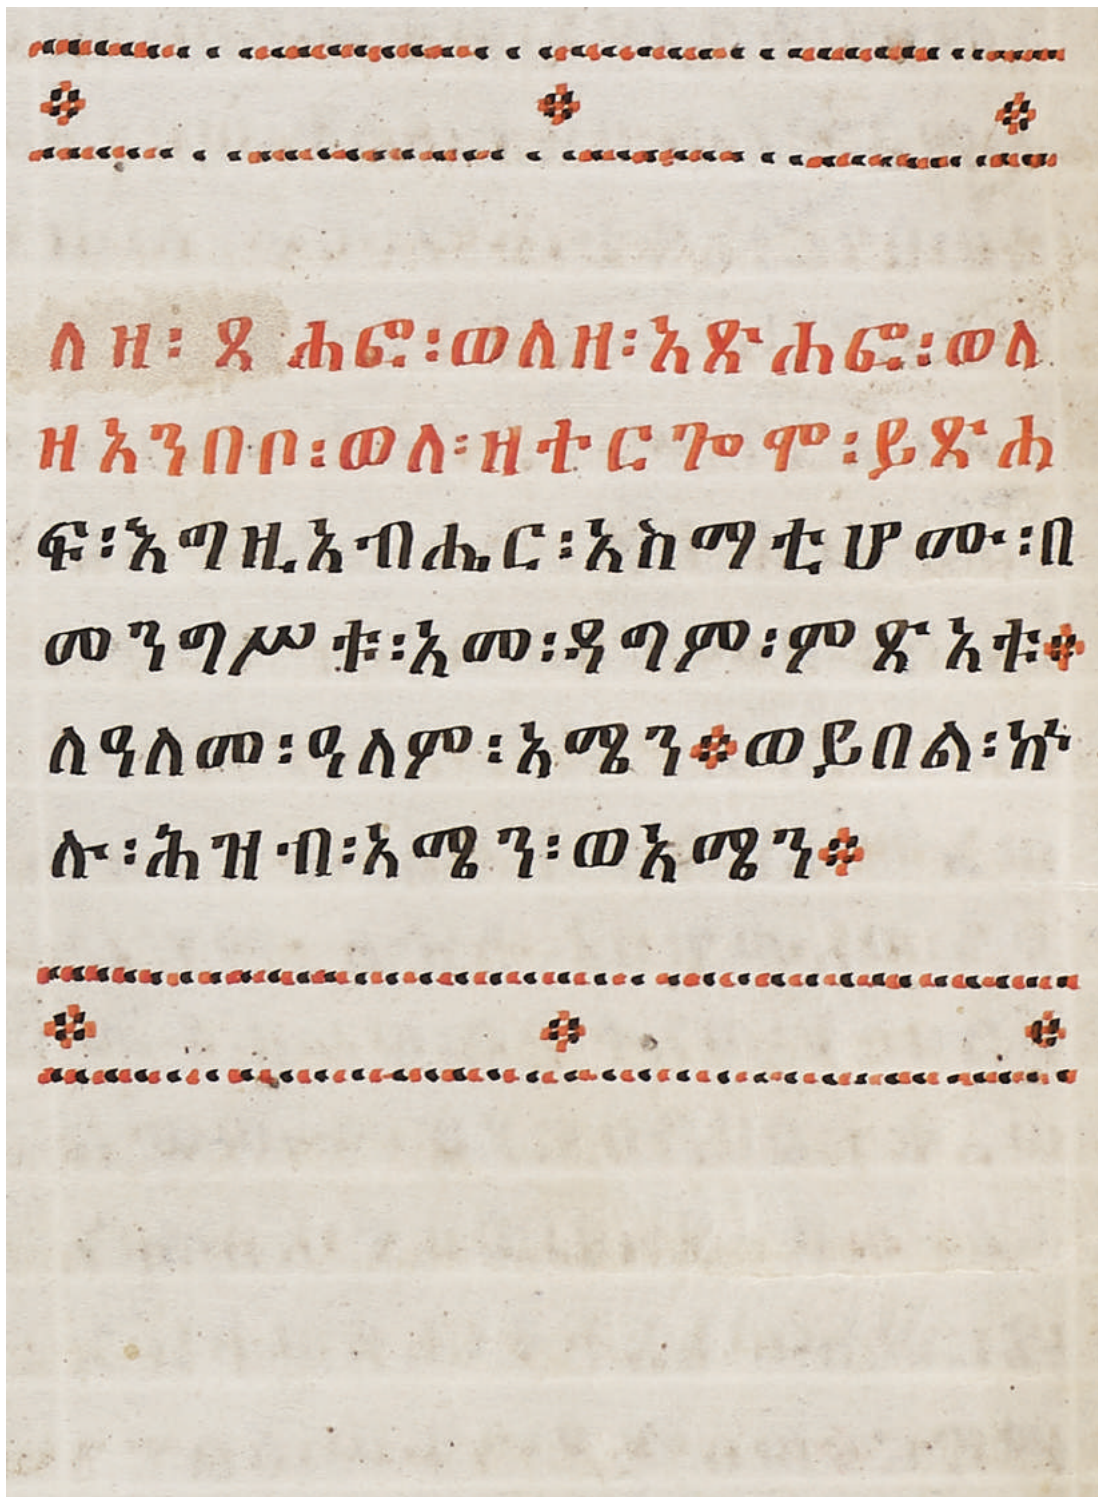 ለዘ፡ጸሐፎ፡ወለዘ፡አጽሐፎ፡ወለ
ዘአንበቦ፡ወለ፡ዘተርጐሞ፡ይጽሐ
ፍ፡እግዚአብሔር፡አስማቲሆሙ፡በ
መንግሥቱ፡አመ፡ዳግም፡ምጽአቱ፨
ለዓለመ፡ዓለም፡አሜን፨ወይበል፡ኵ
ሉ፡ሕዝብ፡አሜን፡ወአሜን፨